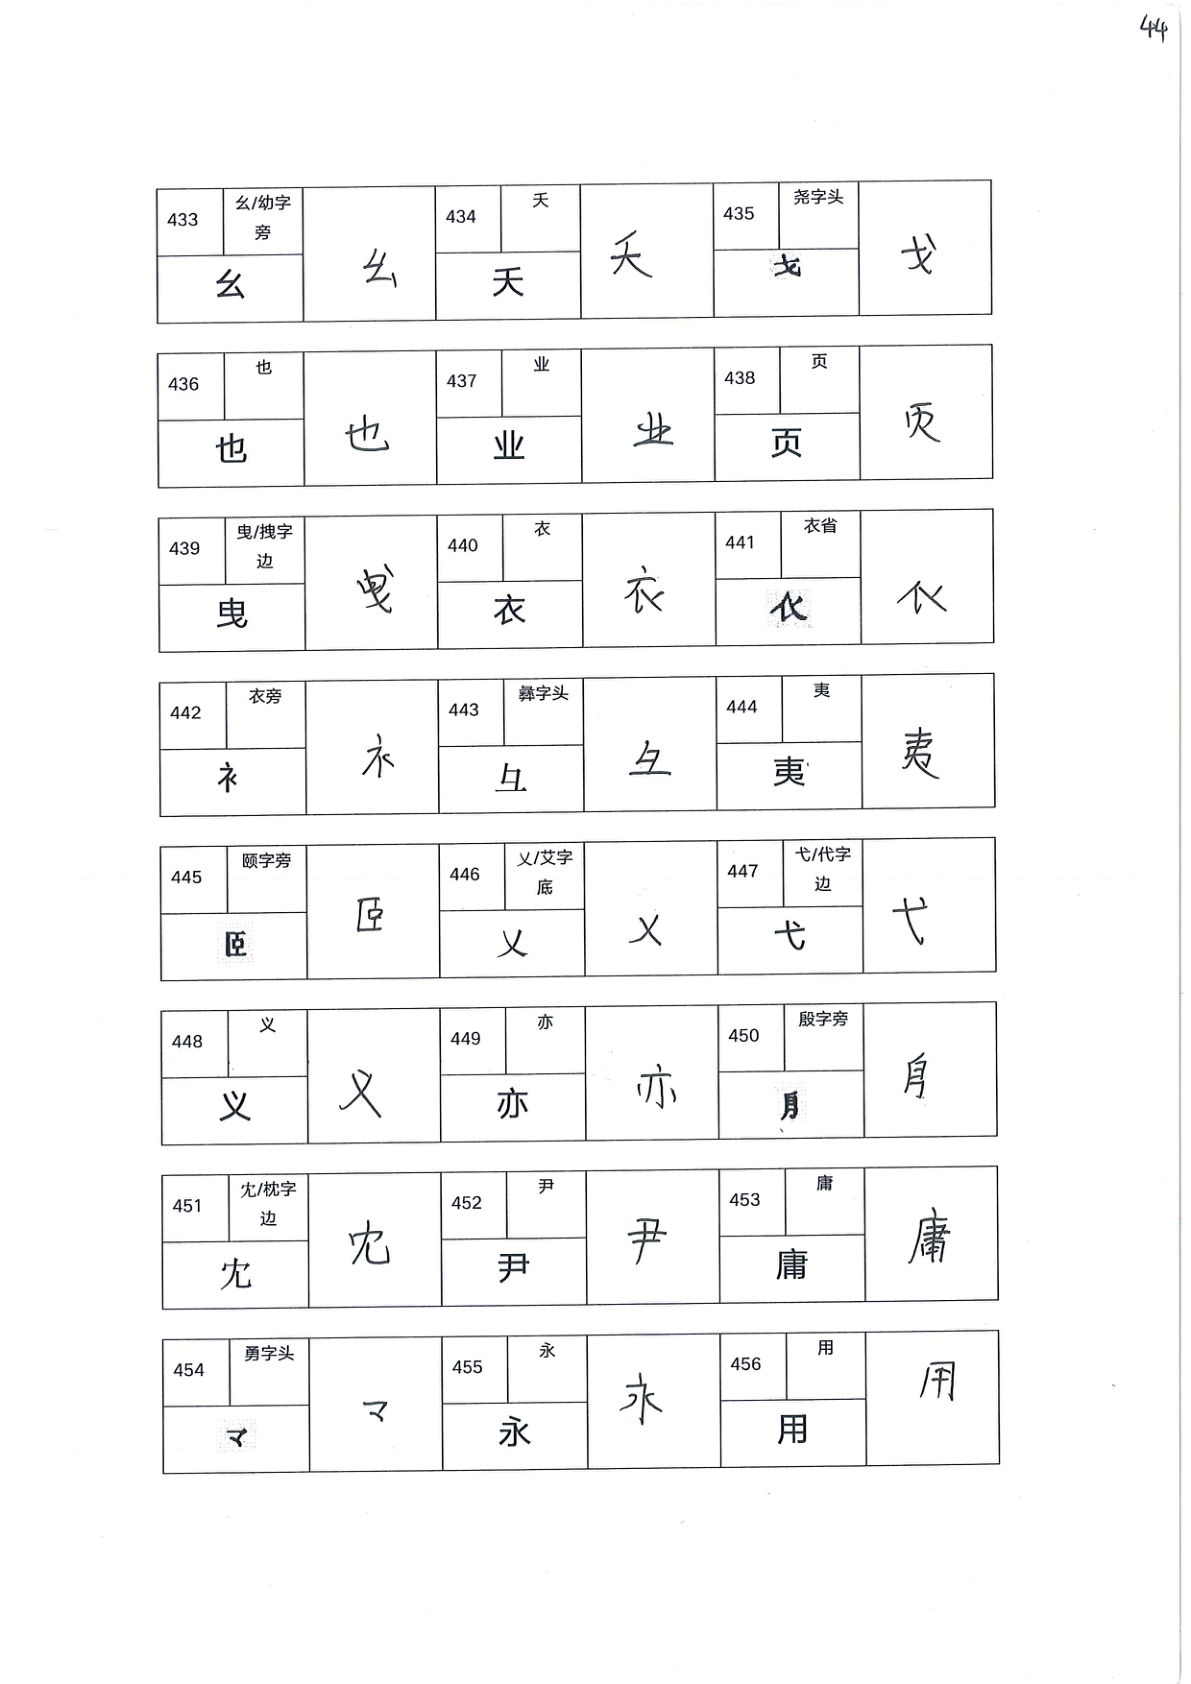 44
433 幺/幼字旁 幺 幺 434 夭 夭 夭 435 尧字头
436 也 也 也 437 业 业 业 438 页 页 页
439 曳/拽字边 曳 曳 440 衣 衣 衣 441 衣省
442 衣旁 衤 衤 443 彝字头 彑 彑 444 夷 夷 夷
445 颐字旁 𦣞 𦣞 446 乂/艾字底 乂 乂 447 弋/代字边 弋 弋
448 义 义 义 449 亦 亦 亦 450 殷字旁
451 冘/枕字边 冘 冘 452 尹 尹 尹 453 庸 庸 庸
454 勇字头 龴 龴 455 永 永 永 456 用 用 用